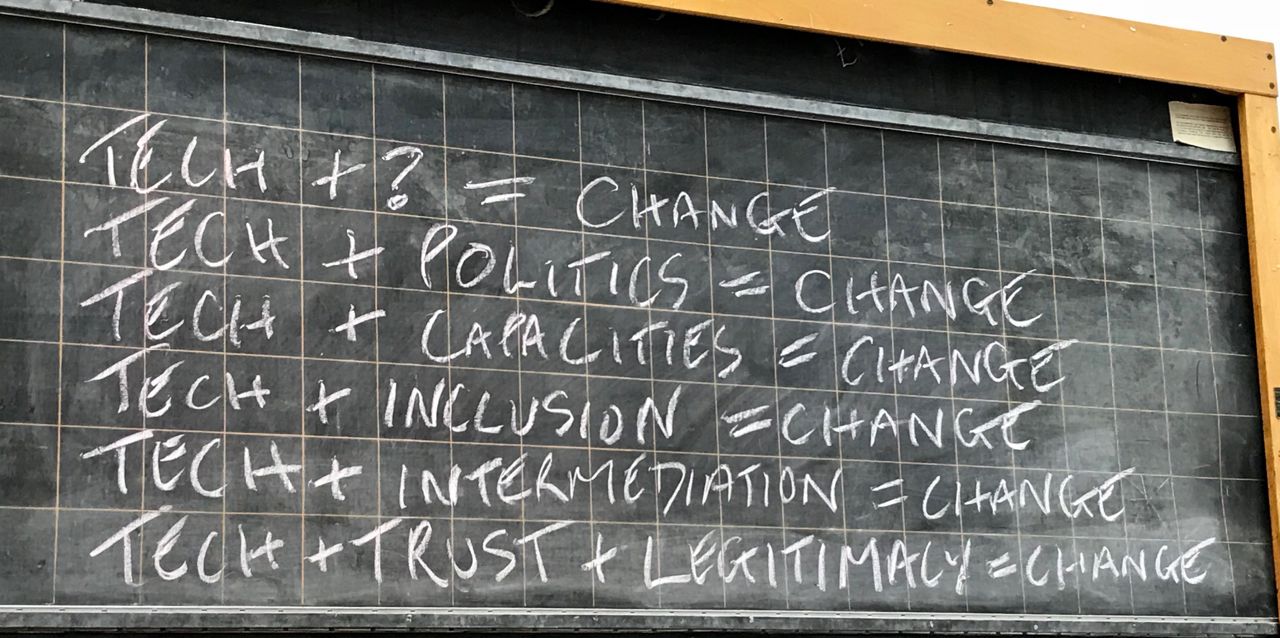 TECH + ? = CHANGE
TECH + POLITICS = CHANGE
TECH + CAPACITIES = CHANGE
TECH + INCLUSION = CHANGE
TECH + INTERMEDIATION = CHANGE
TECH + TRUST + LEGITIMACY = CHANGE